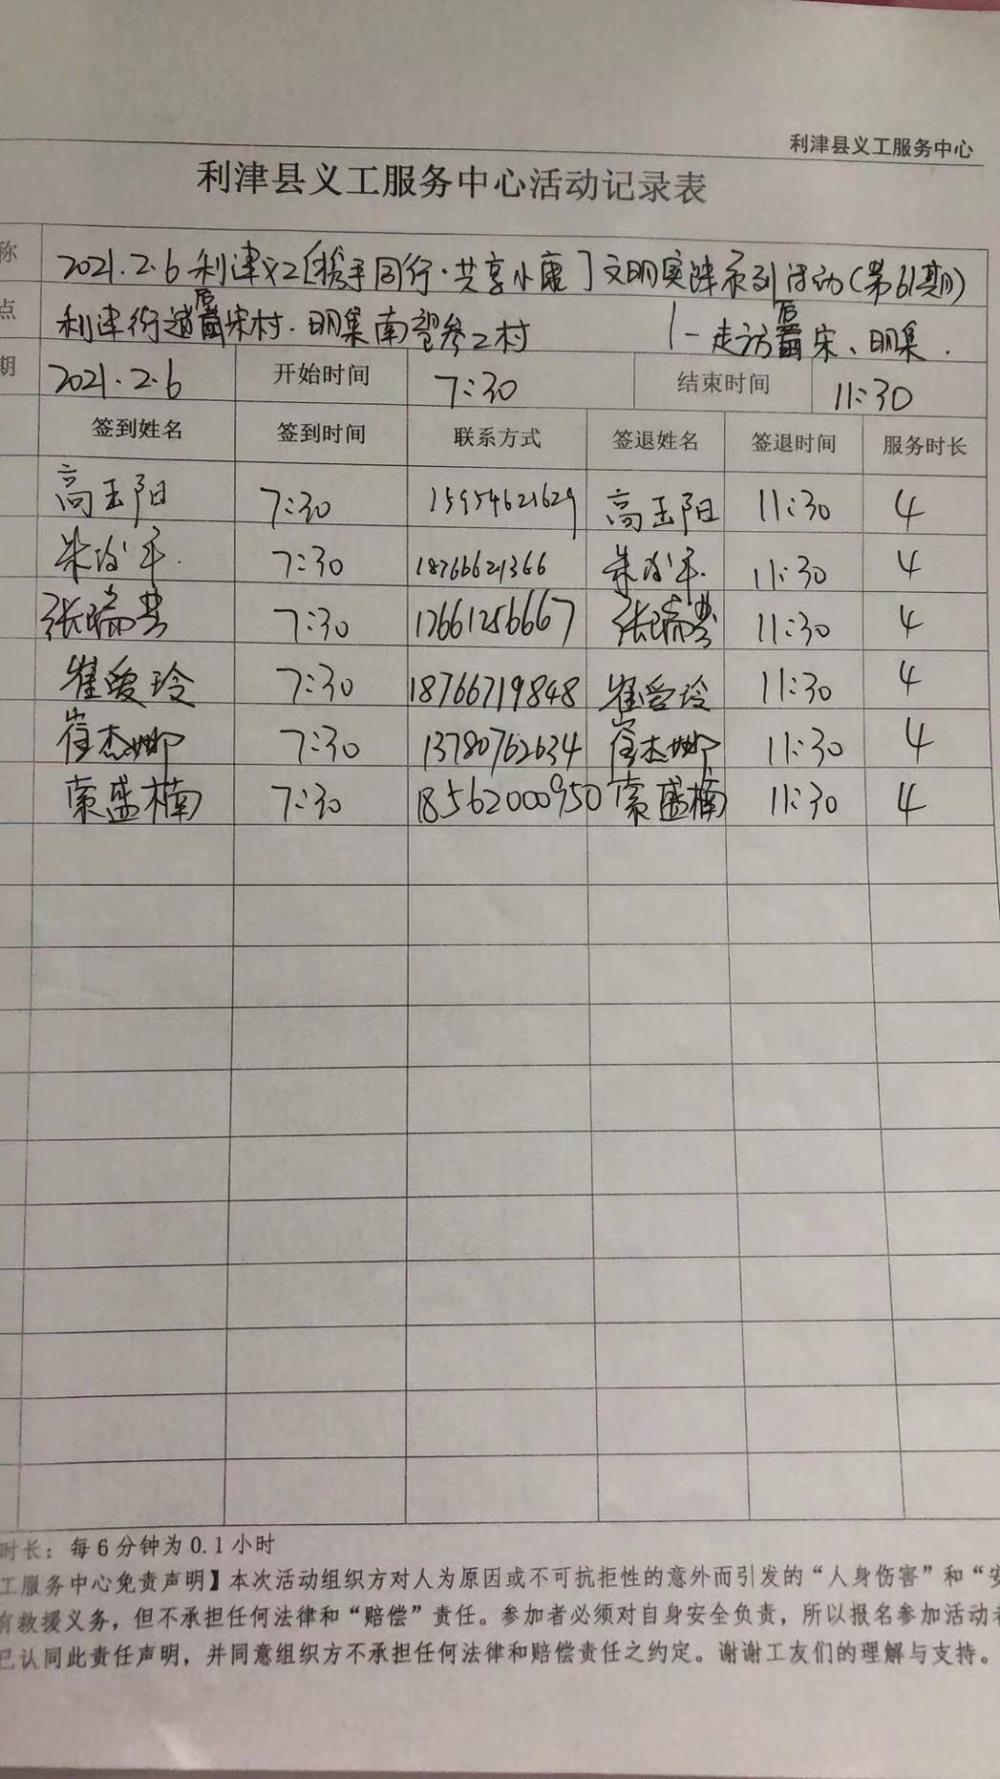 利津县义工服务中心
利津县义工服务中心活动记录表
称 2021.2.6利津义工[携手同行·共享小康]文明实践系列活动(第61期)
点 利津街道后宋村.明集南望参工村 |-走访后宋、明集.
期 2021.2.6 开始时间 7:30 结束时间 11:30
签到姓名 签到时间 联系方式 签退姓名 签退时间 服务时长
高玉阳 7:30 15954621629 高玉阳 11:30 4
7:30 18766621366 11:30 4
张瑞芸 7:30 17661256667 张瑞芸 11:30 4
崔爱玲 7:30 18766719848 崔爱玲 11:30 4
崔杰娜 7:30 13780762634 崔杰娜 11:30 4
索盛楠 7:30 18562000950 索盛楠 11:30 4
时长：每6分钟为0.1小时
工服务中心免责声明】本次活动组织方对人为原因或不可抗拒性的意外而引发的“人身伤害”和“安
有救援义务，但不承担任何法律和“赔偿”责任。参加者必须对自身安全负责，所以报名参加活动者
已认同此责任声明，并同意组织方不承担任何法律和赔偿责任之约定。谢谢工友们的理解与支持。